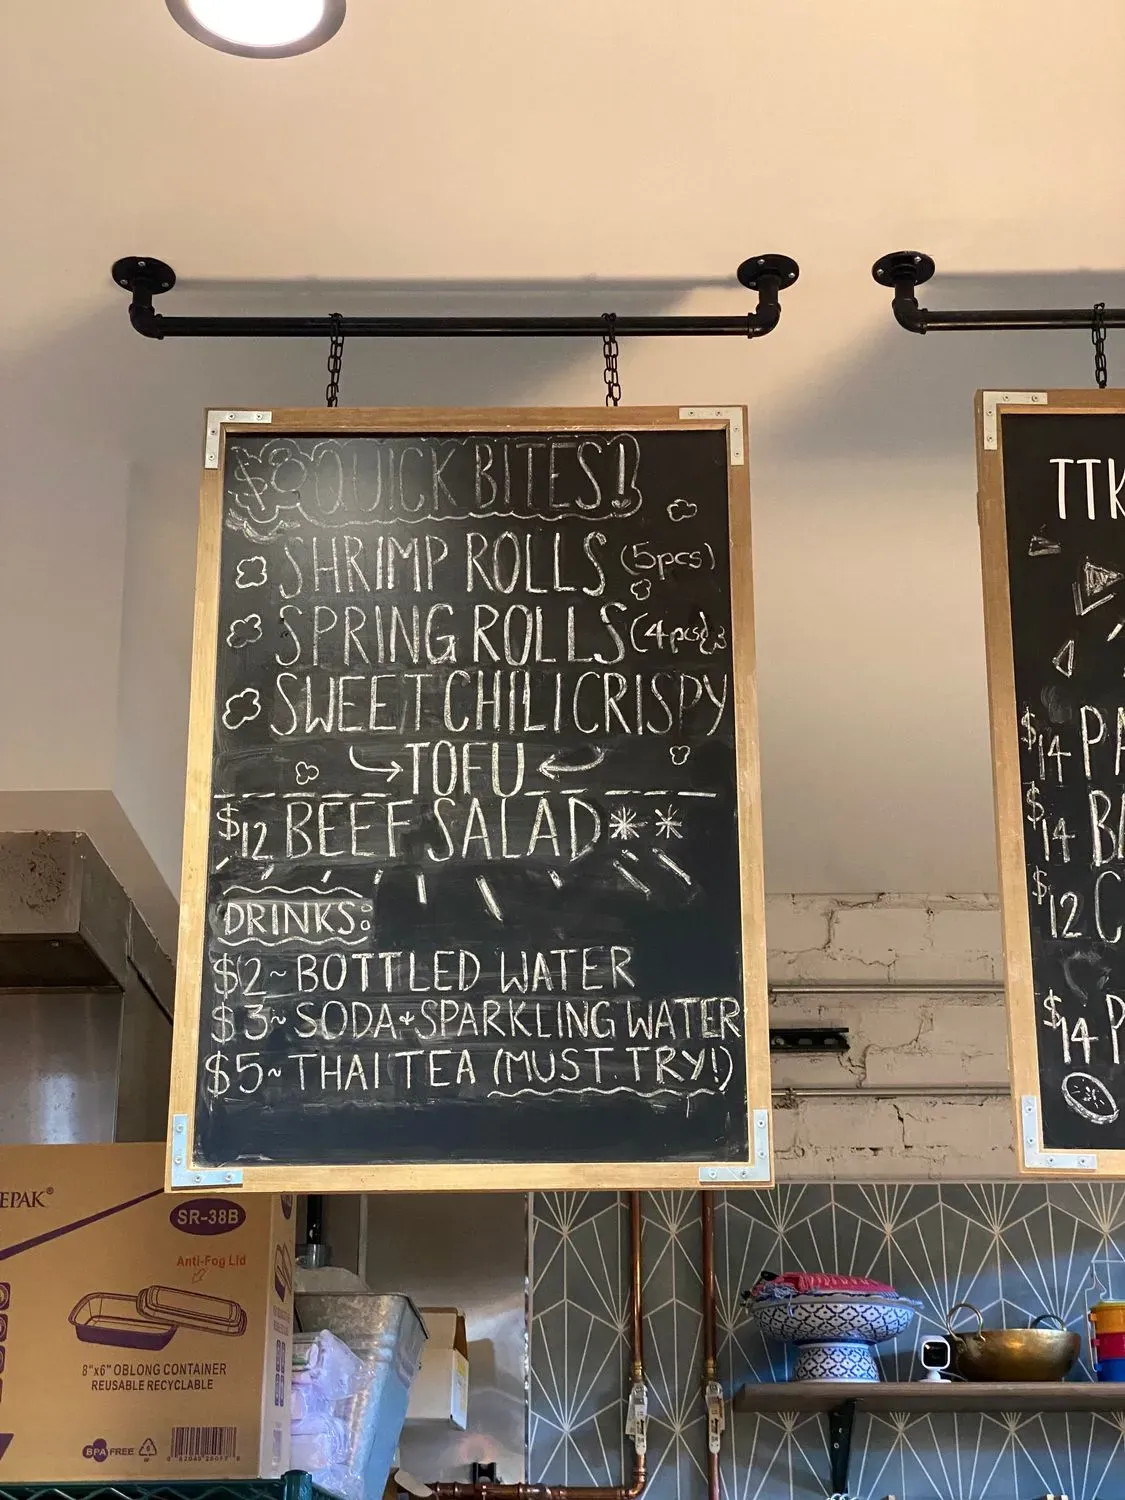 $8 QUICK BITES!
SHRIMP ROLLS (5pcs)
SPRING ROLLS (4pcs)
SWEET CHILI CRISPY
TOFU
$12 BEEF SALAD**
DRINKS:
$2~ BOTTLED WATER
$3~ SODA + SPARKLING WATER
$5~ THAI TEA (MUST TRY!)
TTK
$14 PA
$14 BA
$12 C
$14 P
EPAK®
SR-38B
Anti-Fog Lid
8"x6" OBLONG CONTAINER
REUSABLE RECYCLABLE
BPA FREE